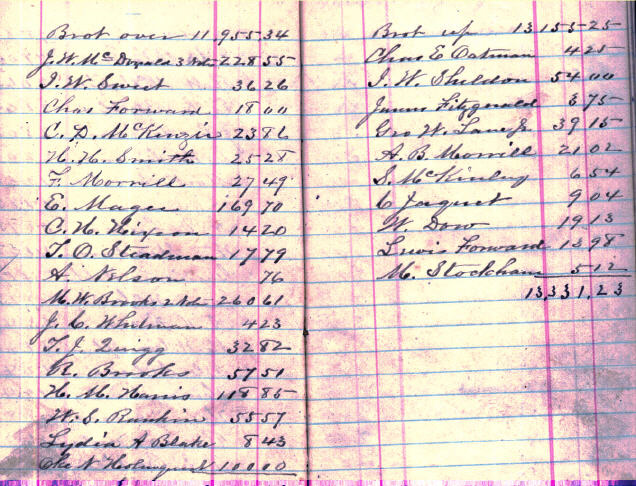 Brot over 11 955 34
J. W. McDonald 3 Notes 228 55
I. W. Sweet 36 26
Chas Forward 18 00
C. D. McKinzie 23 86
H. H. Smith 25 28
F. Morrill 27 49
E. Magee 169 70
C. H. Hixson 14 20
T. O. Steadman 17 79
A Nelson 76
M. W. Brooks 2 Notes 260 61
J. C. Whitman 4 23
T. J. Quigg 32 82
R. Brooks 57 51
H. M. Harris 118 85
W. S. Rankin 55 57
Lydia A Blake 8 43
N Holmquist 100 00
Brot up 13 155 25
Chas E Oatman 4 25
I. W. Sheldon 54 00
James Fitzgerald 3 75
Geo W. Lane Jr 39 15
A. B. Morrill 21 02
S. McKinley 6 54
C Jaquet 9 04
W. Dow 19 13
Lewis Forward 13 98
M. Stockham 5 12
13 331.23